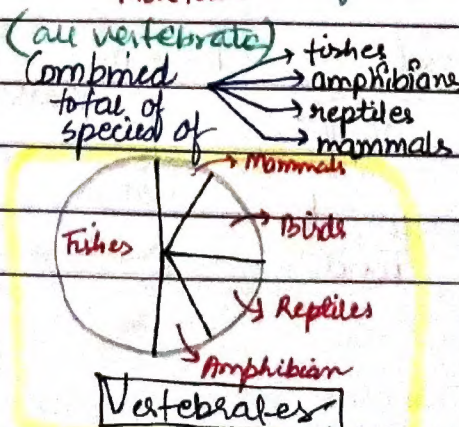 (all vertebrate)
Combined
total of
species of
→ fishes
→ amphibians
→ reptiles
→ mammals
Mammals
Fishes
Birds
Reptiles
Amphibian
Vertebrates